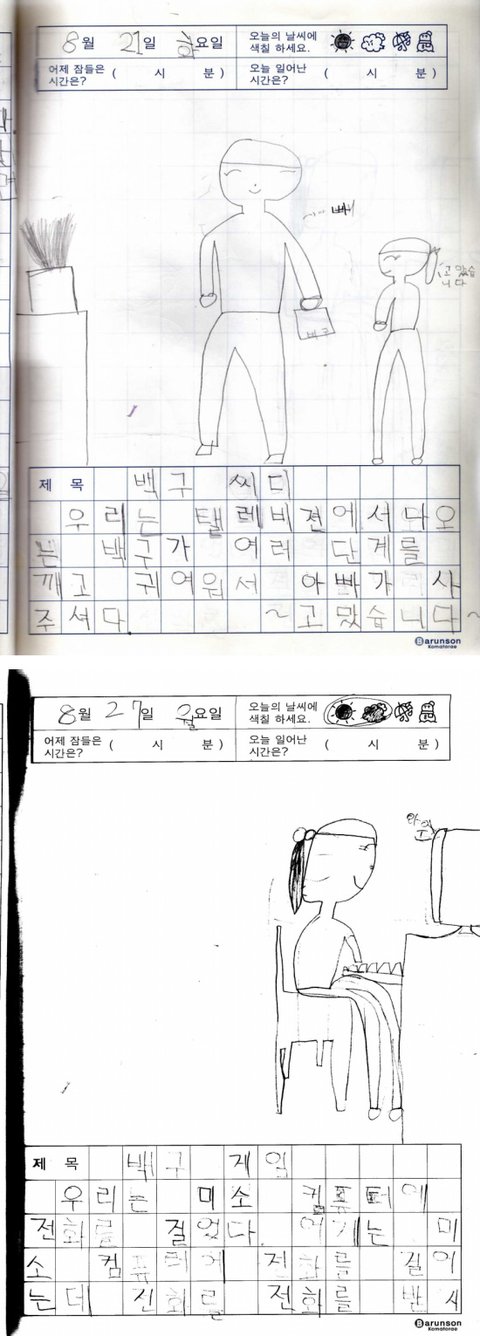 8월 21일 화요일
오늘의 날씨에
색칠 하세요.
어제 잠들은
시간은? ( 시 분 )
오늘 일어난
시간은? ( 시 분 )
빼
고맜습
니다
백구
제목 백구 씨디
우리는 탤레비젼에서 다오
는 백구가 여러 단계를
깨고 귀여워서 아빠가 사
주셔다. ~고맜습니다~
Barunson
Komatorae
8월 27일 월요일
오늘의 날씨에
색칠 하세요.
어제 잠들은
시간은? ( 시 분 )
오늘 일어난
시간은? ( 시 분 )
제목 백구 게임
우리는 미소 컴퓨터에
전화를 걸었다. 여기는 미
소 컴퓨터에 전화를 걸어
는데 전화를 전화를 반시
Barunson
Komatorae